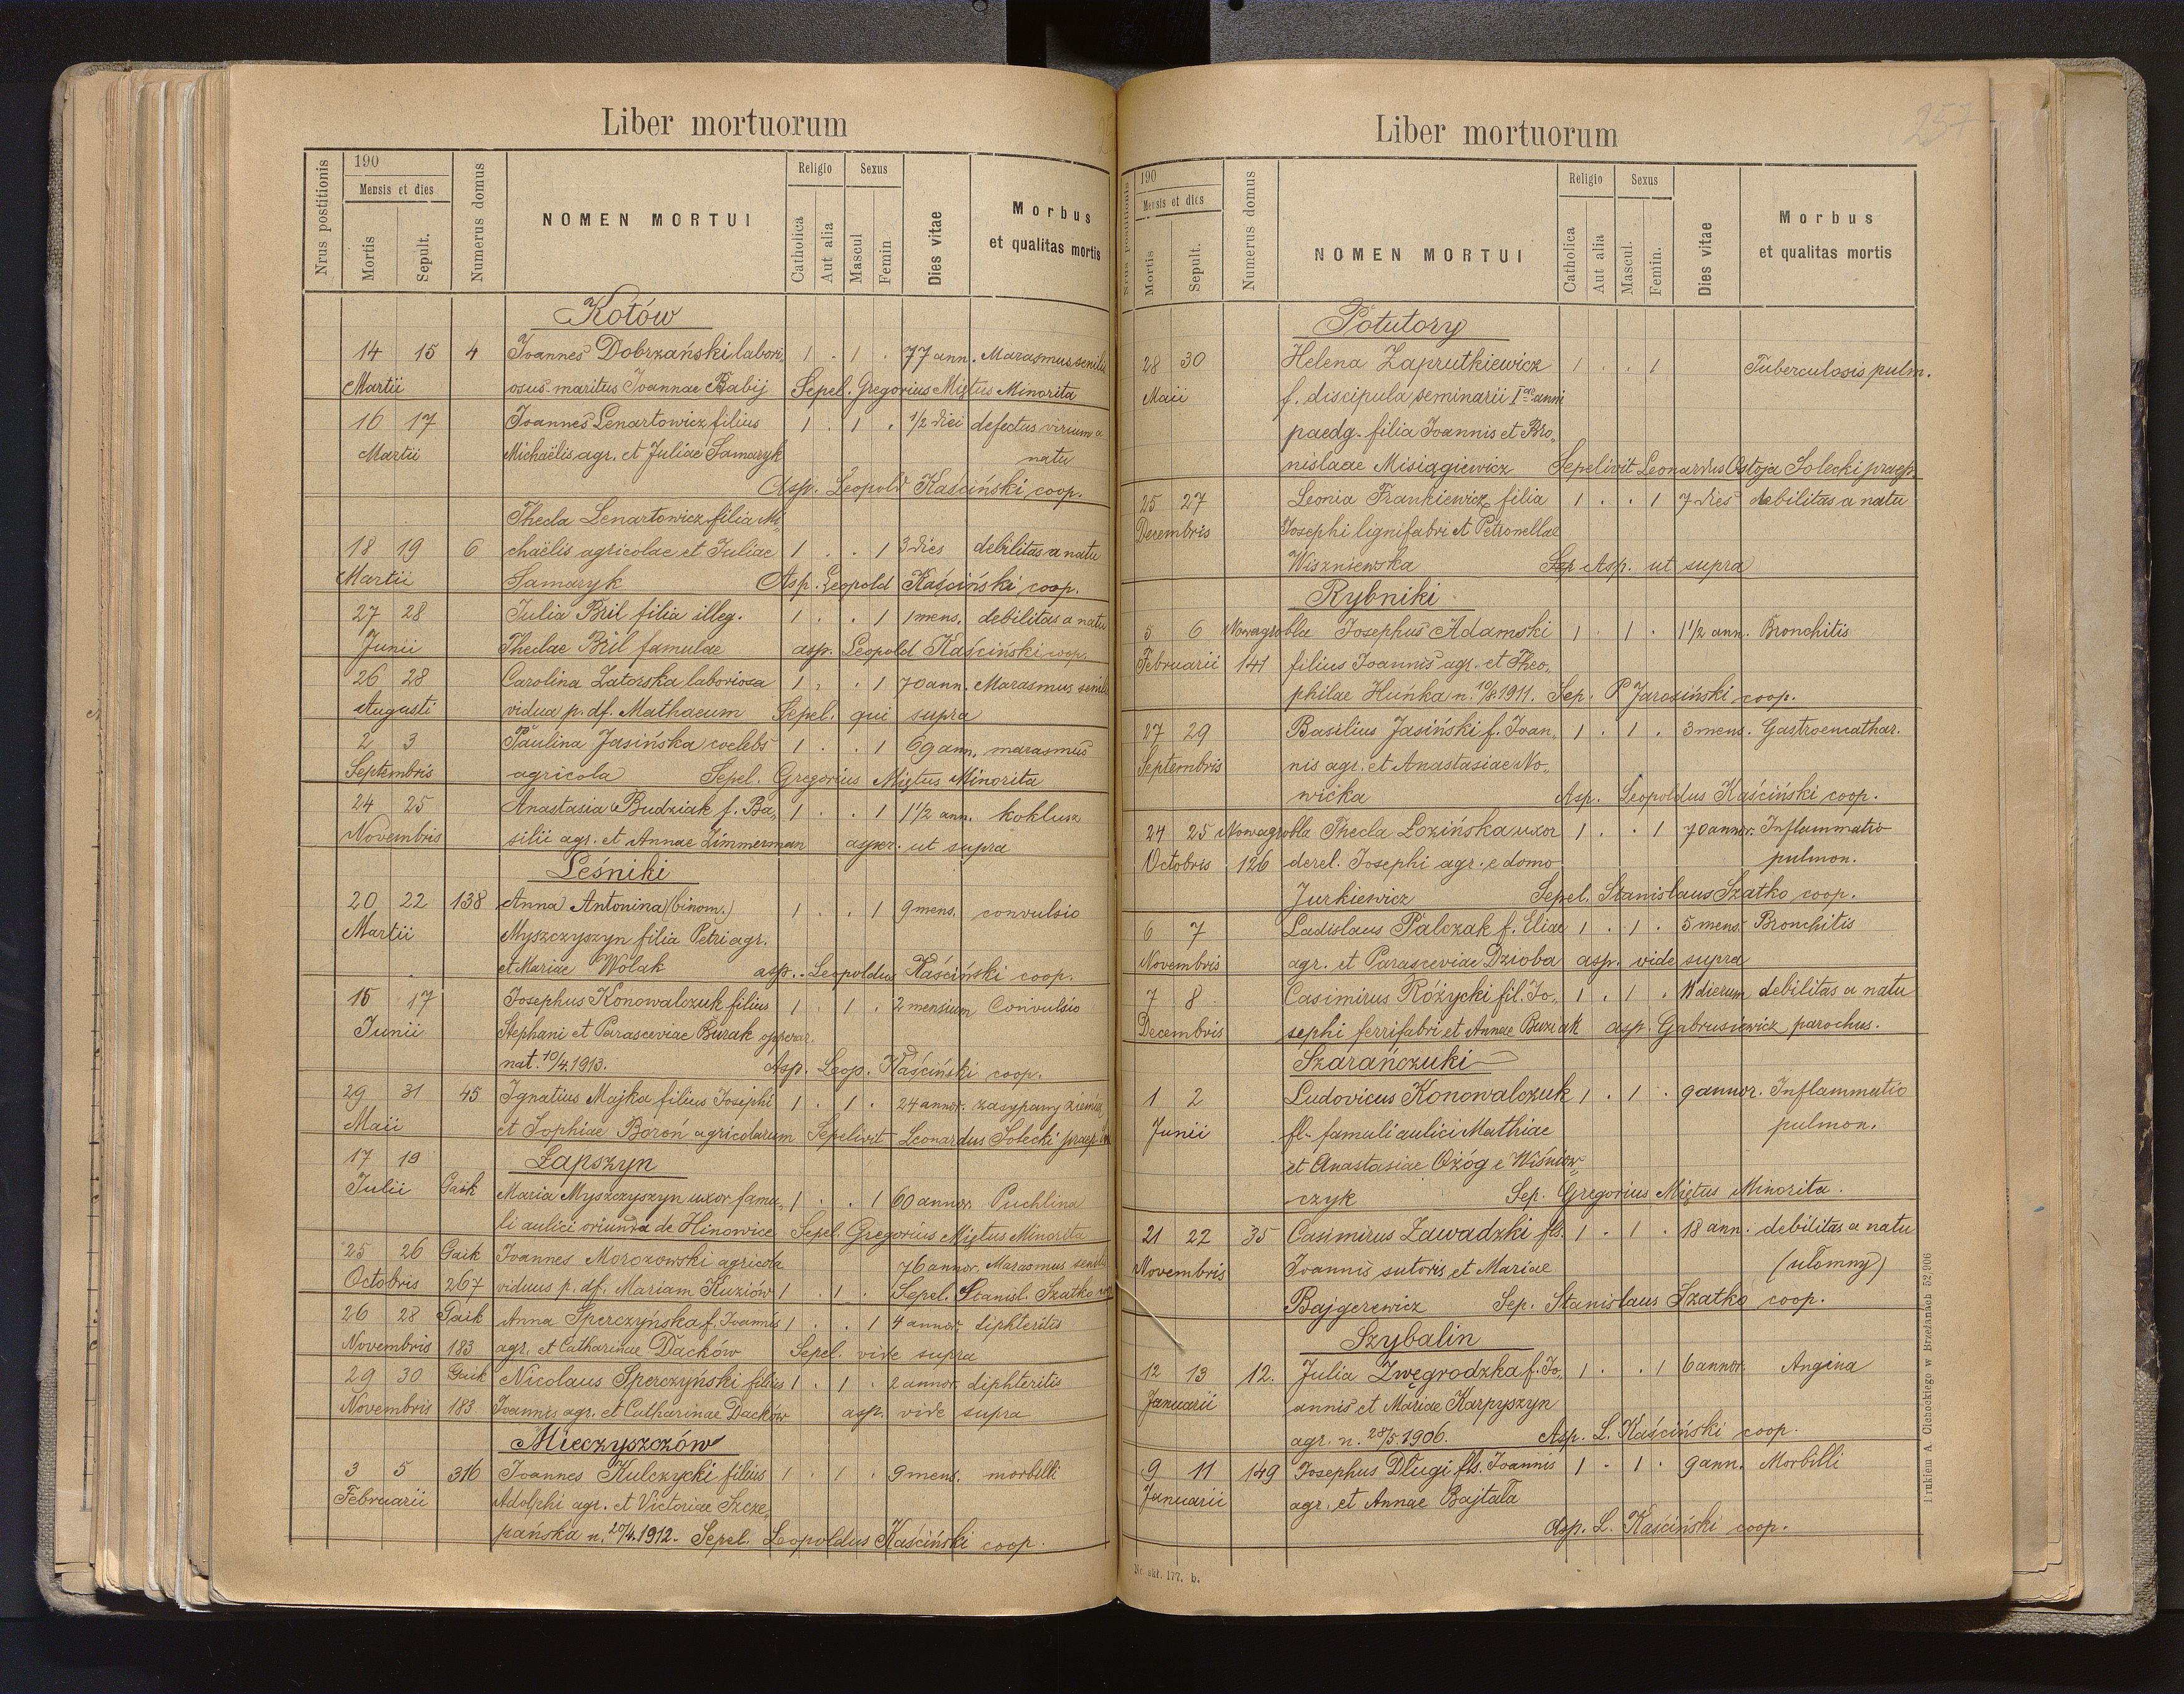 257
Liber mortuorum
Nrus postitionis
190
Mensis et dies
Mortis
Sepult.
Numerus domus
NOMEN MORTUI
Religio
Catholica
Aut alia
Sexus
Mascul
Femin
Dies vitae
Morbus
et qualitas mortis
Kotów
14 15 4 Joannes Dobrzański labori, 1 . 1 . 77 ann. Marasmus senilis
Martii osus maritus Joannae Babij Sepel. Gregorius Miętus Minorita
16 17 Joannes Lenartowicz filius 1 . 1 . 1/2 diei defectus virium a
Martii Michaëlis agr. et Juliae Samaryk natu
Asp. Leopold Kaściński coop.
Thecla Lenartowicz filia Mi,
18 19 6 chaëlis agricolae et Juliae 1 . . 1 3 dies debilitas a natu
Martii Samaryk Asp. Leopold Kaściński coop.
27 28 Julia Bril filia illeg. 1 . . 1 1 mens. debilitas a natu
Junii Theclae Bril famulae asp. Leopold Kaściński coop.
26 28 Carolina Zatorska laboriosa 1 . . 1 70 ann. Marasmus senilis
Augusti vidua p. df. Mathaeum Sepel. qui supra
2 3 Paulina Jasińska coelebs 1 . . 1 69 ann. marasmus
Septembris agricola Sepel. Gregorius Miętus Minorita
24 25 Anastasia Budziak f. Ba, 1 . . 1 1 1/2 ann. koklusz
Novembris silii agr. et Annae Zimmerman asper. ut supra
Leśniki
20 22 138 Anna Antonina (binom.) 1 . . 1 9 mens. convulsio
Martii Myszczyszyn filia Petri agr.
et Mariae Wolak asp. Leopoldus Kaściński coop.
15 17 Josephus Konowalczuk filius 1 . 1 . 2 mensium Convulsio
Junii Stephani et Parasceviae Burak operar.
nat. 10/4.1913. Asp. Leop. Kaściński coop.
29 31 45 Ignatius Majka filius Josephi 1 . 1 . 24 annor. zasypany ziemią
Maii et Sophiae Boroń agricolarum Sepelivit Leonardus Solecki praep.
17 19 Łapszyn
Julii Gaik Maria Myszczyszyn uxor famu, 1 . . 1 60 annor Puchlina
li aulici oriunda de Hinowice Sepel. Gregorius Miętus Minorita
25 26 Gaik Joannes Morozowski agricola 76 annor. Marasmus senilis
Octobris 267 viduus p. df. Mariam Kuziów 1 . 1 . Sepel. Stanisl. Szatko coop
26 28 Gaik Anna Sperczyńska f. Joannis 1 . . 1 4 annor. diphteritis
Novembris 183 agr. et Catharinae Dacków Sepel. vide supra
29 30 Gaik Nicolaus Sperczyński filius 1 . 1 . 2 annor. diphteritis
Novembris 183 Joannis agr. et Catharinae Dacków asp. vide supra
Mieczyszczów
3 5 316 Joannes Kulczycki filius 1 . 1 . 9 mens. morbilli
Februarii Adolphi agr. et Victoriae Szcze,
pańska n. 20/4.1912. Sepel. Leopoldus Kaściński coop.
Liber mortuorum
Nrus postitionis
190
Mensis et dies
Mortis
Sepult.
Numerus domus
NOMEN MORTUI
Religio
Catholica
Aut alia
Sexus
Mascul.
Femin.
Dies vitae
Morbus
et qualitas mortis
Potutory
28 30 Helena Zaprutkiewicz 1 . . 1 Tuberculosis pulm.
Maii f. discipula seminarii I anni
paedg. filia Joannis et Bro,
nislaae Misiągiewicz Sepelivit Leonardus Ostoja Solecki praep.
25 27 Leonia Frankiewicz filia 1 . . 1 7 dies debilitas a natu
Decembris Josephi lignifabri et Petronellae
Wiszniewska Sep Asp. ut supra
Rybniki
5 6 Nowagrobla Josephus Adamski 1 . 1 . 1 1/2 ann. Bronchitis
Februarii 141 filius Joannis agr. et Theo,
philae Hunka n. 10/8 1911. Sep. P Jarosiński coop.
27 29 Basilius Jasiński f. Joan, 1 . 1 . 3 mens. Gastroencathar.
Septembris nis agr. et Anastasiae No,
wicka Asp. Leopoldus Kaściński coop.
24 25 Nowagrobla Thecla Łozińska uxor 1 . . 1 70 annor. Inflammatio
Octobris 126 derel. Josephi agr. e domo pulmon.
Jurkiewicz Sepel. Stanislaus Szatko coop.
6 7 Ladislaus Palczak f. Eliae 1 . 1 . 5 mens. Bronchitis
Novembris agr. et Parasceviae Dzioba asp. vide supra
7 8 Casimirus Różycki fil. Jo, 1 . 1 . 11 dierum debilitas a natu
Decembris sephi ferrifabri et Annae Buziak asp. Gabrusiewicz parochus.
Szarańczuki
1 2 Ludovicus Konowalczuk 1 . 1 . 9 annor. Inflammatio
Junii fl. famuli aulici Mathiae pulmon.
et Anastasiae Ożóg e Wiśniow,
czyk Sep. Gregorius Miętus Minorita.
21 22 35 Casimirus Zawadzki fls. 1 . 1 . 18 ann. debilitas a natu
Novembris Joannis sutoris et Mariae (ułomny)
Bajgerewicz Sep. Stanislaus Szatko coop.
Szybalin
12 13 12. Julia Zwęgrodzka f. Jo, 1 . . 1 6 annor. Angina
Januarii annis et Mariae Karpyszyn
agr. n. 28/5.1906. Asp. L. Kaściński coop.
9 11 149 Josephus Długi fls. Joannis 1 . 1 . 9 ann. Morbilli
Januarii agr. et Annae Bajtała
Asp. L. Kaściński coop.
Nr. skł. 177. b.
Drukiem A Cichockiego w Brzeżanach 52,906